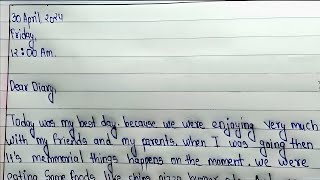 30 April 2024
Friday,
12:00 Am.
Dear Diary,
Today was my best day. because we were enjoying very much
with my friends and my parents. when I was going then
it's memmorial things happens on the moment. we were
eating some foods like chips, pizza, burger etc.